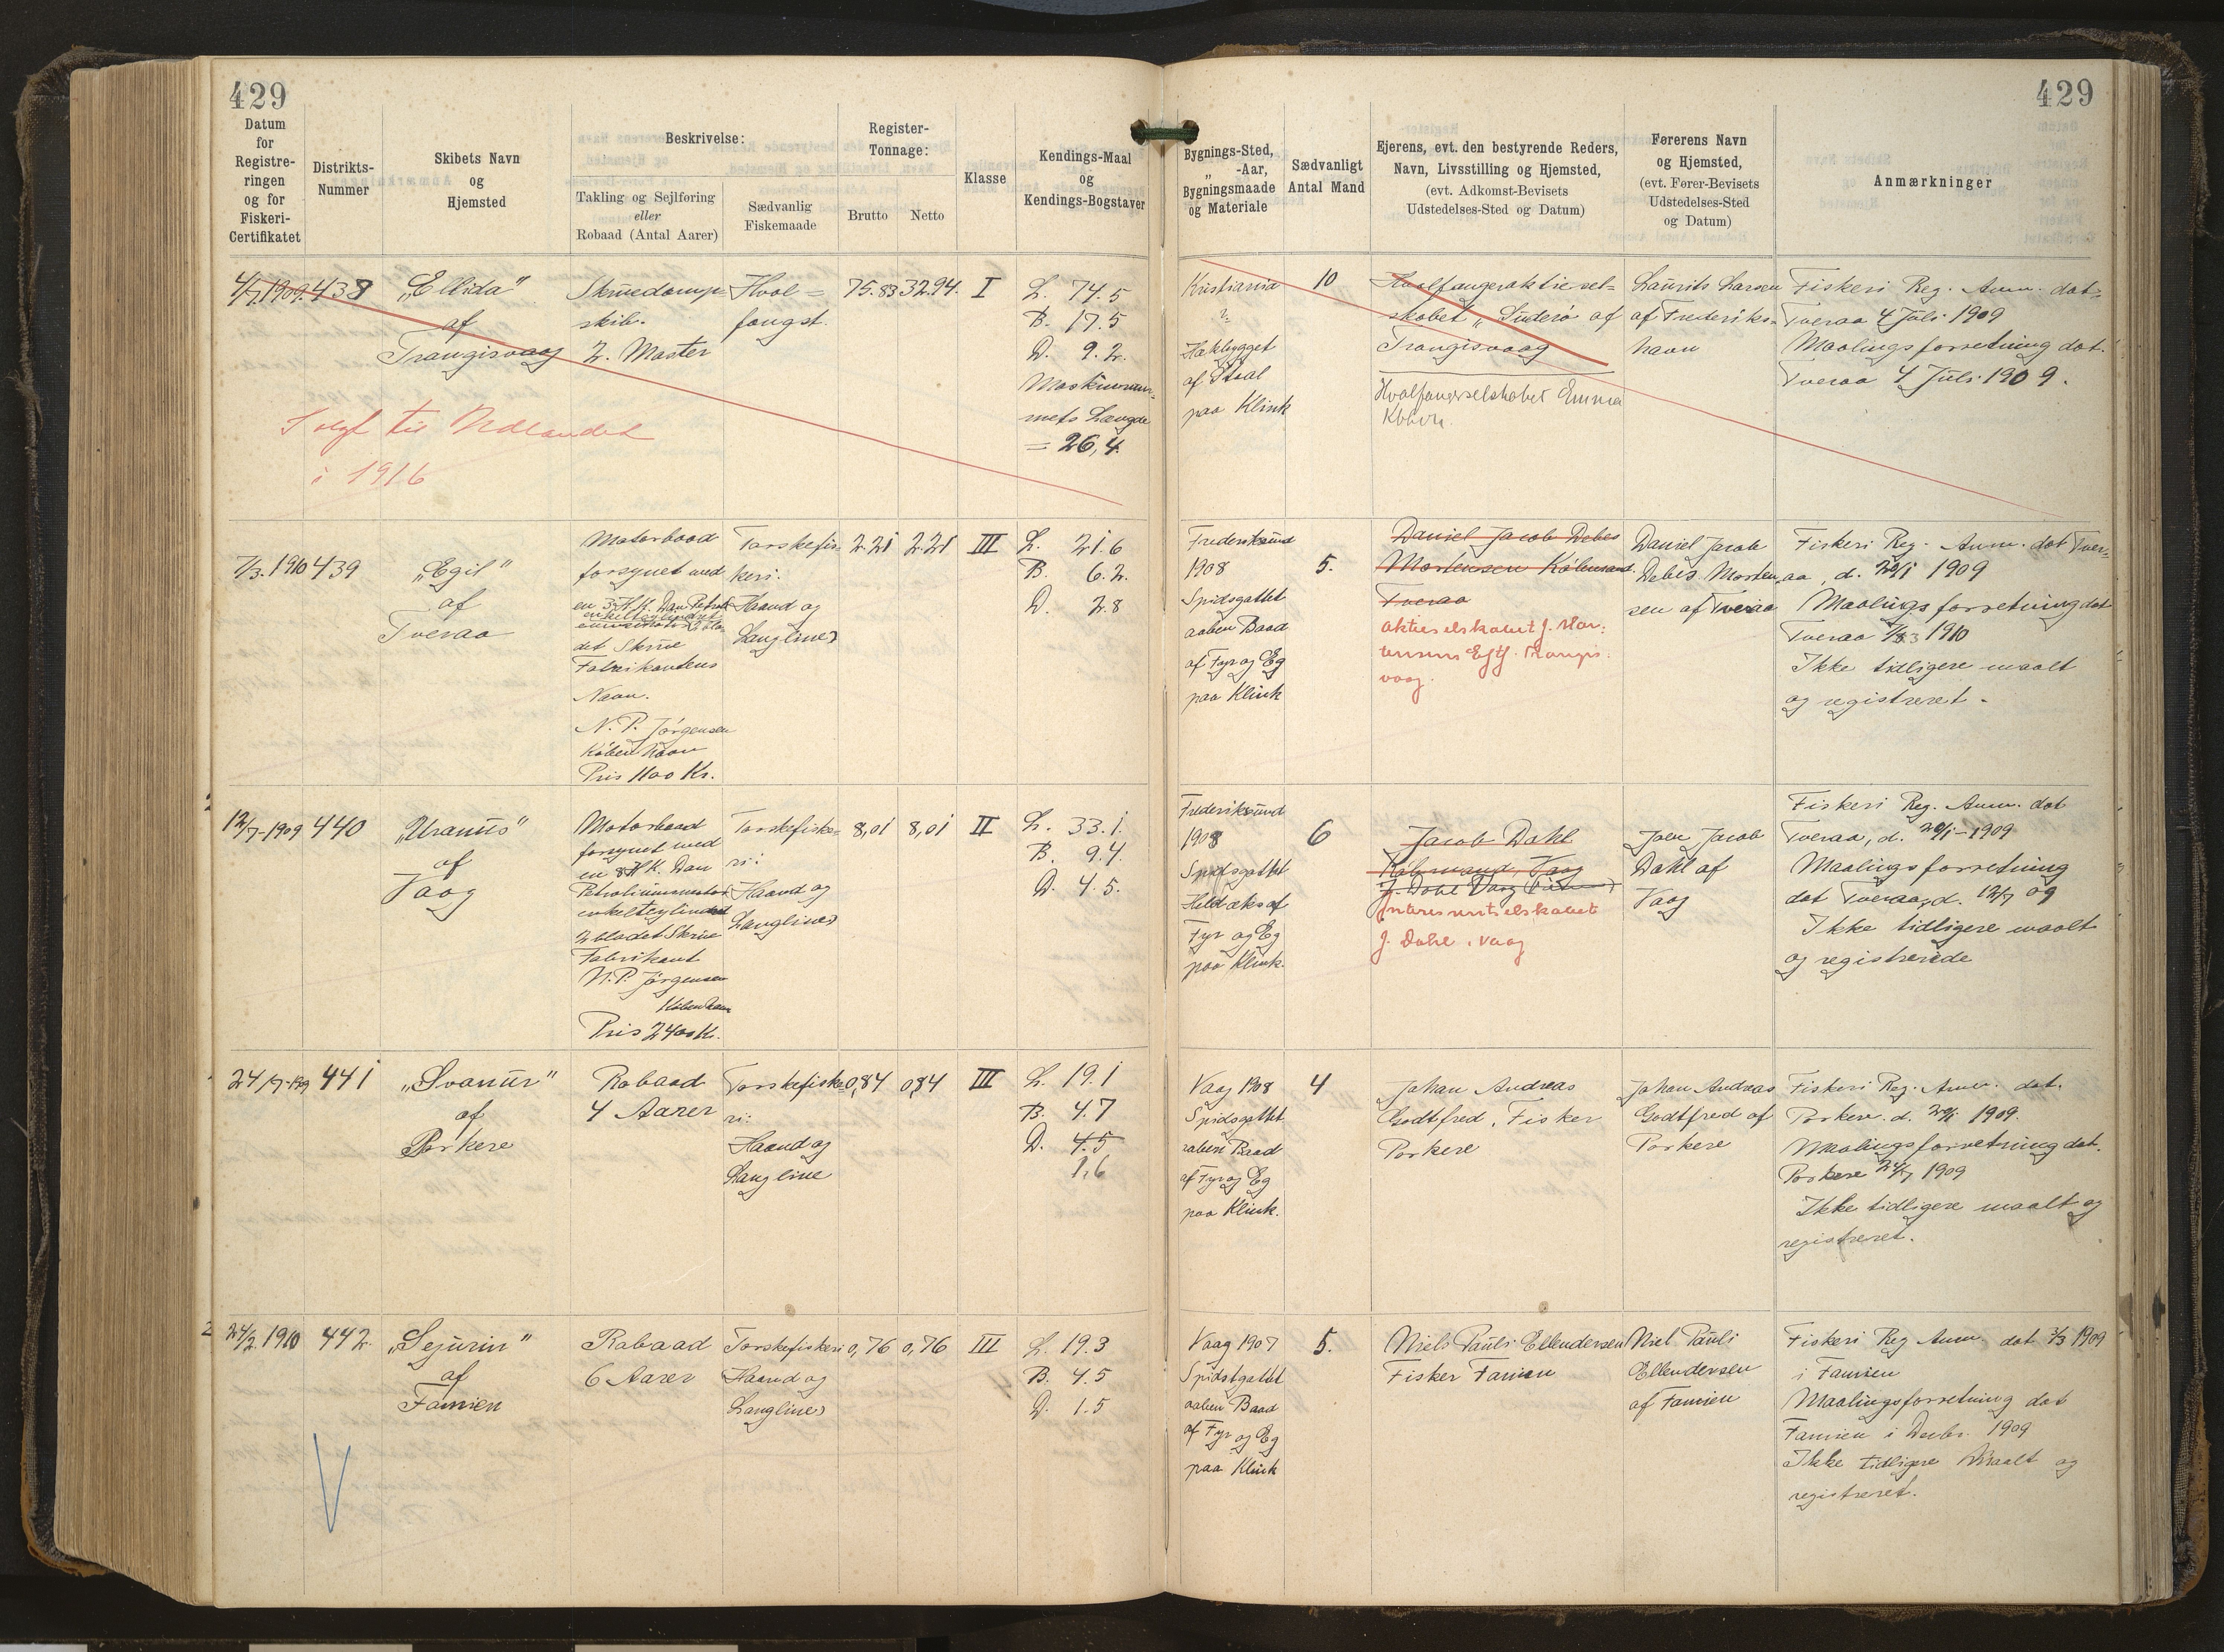 429
429
Datum
for
Registre-
ringen
og for
Fiskeri-
Certifikatet
Distrikts-
Nummer
Skibets Navn
og
Hjemsted
Beskrivelse:
Takling og Sejlføring
eller
Robaad (Antal Aarer)
Sædvanlig
Fiskemaade
Register-
Tonnage:
Brutto
Netto
Klasse
Kendings-Maal
og
Kendings-Bogstaver
Bygnings-Sted,
„ -Aar,
Bygningsmaade
og Materiale
Sædvanligt
Antal Mand
Ejerens, evt. den bestyrende Reders,
Navn, Livsstilling og Hjemsted,
(evt. Adkomst-Bevisets
Udstedelses-Sted og Datum)
Førerens Navn
og Hjemsted,
(evt. Fører-Bevisets
Udstedelses-Sted
og Datum)
Anmærkninger
4/7 1909.
438
„Ellida"
af
Trangisvaag
Solgt til Udlandet
i 1916
Skruedamp-
skib.
2. Master
Hval=
fangst.
75.83
32.94.
I
L. 74.5
B. 17.5
D. 9.2.
Maskinrum-
mets Længde
= 26,4.
Kristiania
?
Hækbygget
af Staal
paa Klink
10
Hvalfangeraktiesel-
skabet „Suderø" af
Trangisvaag
Hvalfangerselskabet Emma
Kbhvn.
Laurits Larsen
af Frederiks=
havn
Fiskeri Reg. Anm. dat=
Tveraa 4 Juli 1909
Maalingsforretning dat.
Tveraa 4 Juli 1909.
7/3. 1910
439
„Egil"
af
Tveraa
Motorbaad
forsynet med
en 3 H.K. Dan Petrol
enkeltcylindret
det Skrue
Fabrikantens
Navn.
N. P. Jørgensen
København
Pris 1100 Kr.
Torskefis-
keri.
Haand og
Langline)
2.21
2.21
III
L. 21.6
B. 6.2.
D. 2.8
Frederiksund
1908
Spidsgattet
aaben Baad
af Fyr og Eg
paa Klink
5.
Daniel Jacob Debes
Mortensen Købmand.
Tveraa
Aktieselskabet J. Mor-
tensens Eftf. Trangis-
vaag.
Daniel Jacob
Debes Morten-
sen af Tveraa
Fiskeri Reg. Anm. dat Tver-
aa, d. 20/1 1909
Maalingsforretning dat
Tveraa 7/3 1910
Ikke tidligere maalt
og registreret.
12/7-1909
440
„Uranus"
af
Vaag
Motorbaad
forsynet med
en 8 H.K. Dan
Petroliumsmotor
enkeltcylindret
2 bladet Skrue
Fabrikant
N. P. Jørgensen
København
Pris 2400 Kr.
Torskefiske-
ri:
Haand og
Langline)
8,01
8,01
II
L. 33.1.
B. 9.4.
D. 4.5.
Frederiksund
1908
Spidsgattet
Heldæks af
Fyr og Eg
paa Klink.
6
Jacob Dahl
Købmand, Vaag
J. Dahl Vaag
Interessentselskabet
J. Dahl, Vaag
Joen Jacob
Dahl af
Vaag
Fiskeri Reg. Anm. dat
Tveraa, d. 20/1-1909
Maalingsforretning
dat Tveraa, d. 12/7 09
Ikke tidligere maalt
og registrerede
24/7-1909
441
„Svanur"
af
Porkere
Robaad
4 Aarer
Torskefiske-
ri:
Haand og
Langline
0,84
0,84
III
L. 19.1
B. 4.7
D. 4.5
1,6
Vaag 1908
Spidsgattet
aaben Baad
af Fyr og Eg
paa Klink.
4
Johan Andreas
Godtfred, Fisker
Porkere
Johan Andreas
Godtfred af
Porkere
Fiskeri Reg. Anm. dat.
Porkere. d. 20/1 1909.
Maalingsforretning dat.
Porkere 24/7 1909
Ikke tidligere maalt og
registreret.
24/2 1910
442.
„Sejurin"
af
Famien
Robaad
6 Aarer
Torskefiskeri
Haand og
Langline)
0,76
0,76
III
L. 19.3
B. 4.5
D. 1.5
Vaag 1907
Spidsgattet
aaben Baad
af Fyr og Eg
paa Klink
5.
Niels Pauli Ellendersen
Fisker Famien
Niel Pauli
Ellendersen
af Famien
Fiskeri Reg Anm. dat 3/3 1909
i Famien
Maalingsforretning dat
Famien i Decbr. 1909
Ikke tidligere Maalt og
registreret.